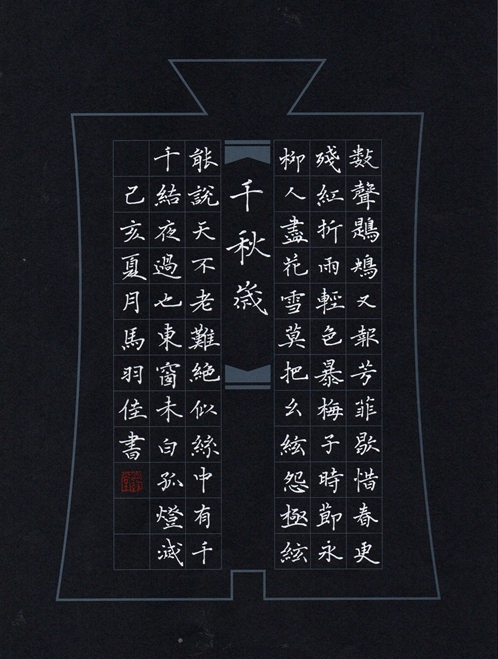 数聲鶗鴂又報芳菲歇惜春更
殘紅折雨輕色暴梅子時節永
柳人盡花雪莫把幺絃怨極絃
千秋歲
能說天不老難絕似絲中有千
千結夜過也東窗未白孤燈滅
己亥夏月馬羽佳書